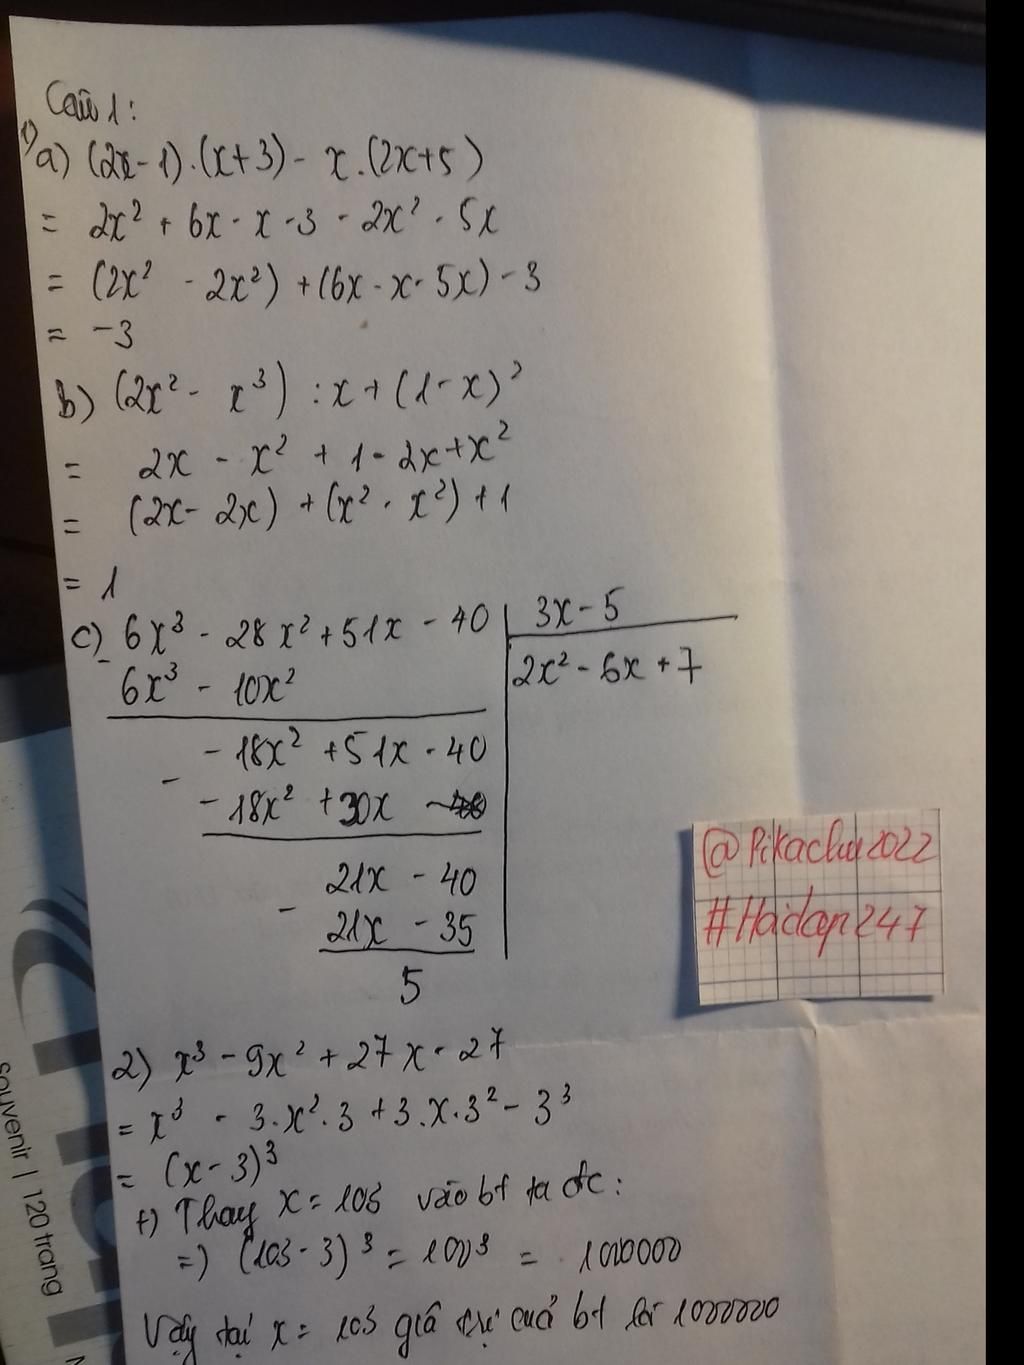 Câu 1:
1) a) (2x-1).(x+3) - x.(2x+5)
= 2x² + 6x - x - 3 - 2x² - 5x
= (2x² - 2x²) + (6x - x - 5x) - 3
= -3
b) (2x² - x³) : x + (1-x)²
= 2x - x² + 1 - 2x + x²
= (2x - 2x) + (x² - x²) + 1
= 1
c) 6x³ - 28x² + 51x - 40 | 3x - 5
- 6x³ - 10x² | 2x² - 6x + 7
- 18x² + 51x - 40
- - 18x² + 30x
21x - 40
- 21x - 35
5
@Pikachu2022
#Hoidap247
2) x³ - 9x² + 27x - 27
= x³ - 3.x².3 + 3.x.3² - 3³
= (x-3)³
+) Thay x = 103 vào bt ta đc:
=) (103-3)³ = 100³ = 1000000
Vậy tại x = 103 giá trị của bt là 1000000
souvenir | 120 trang